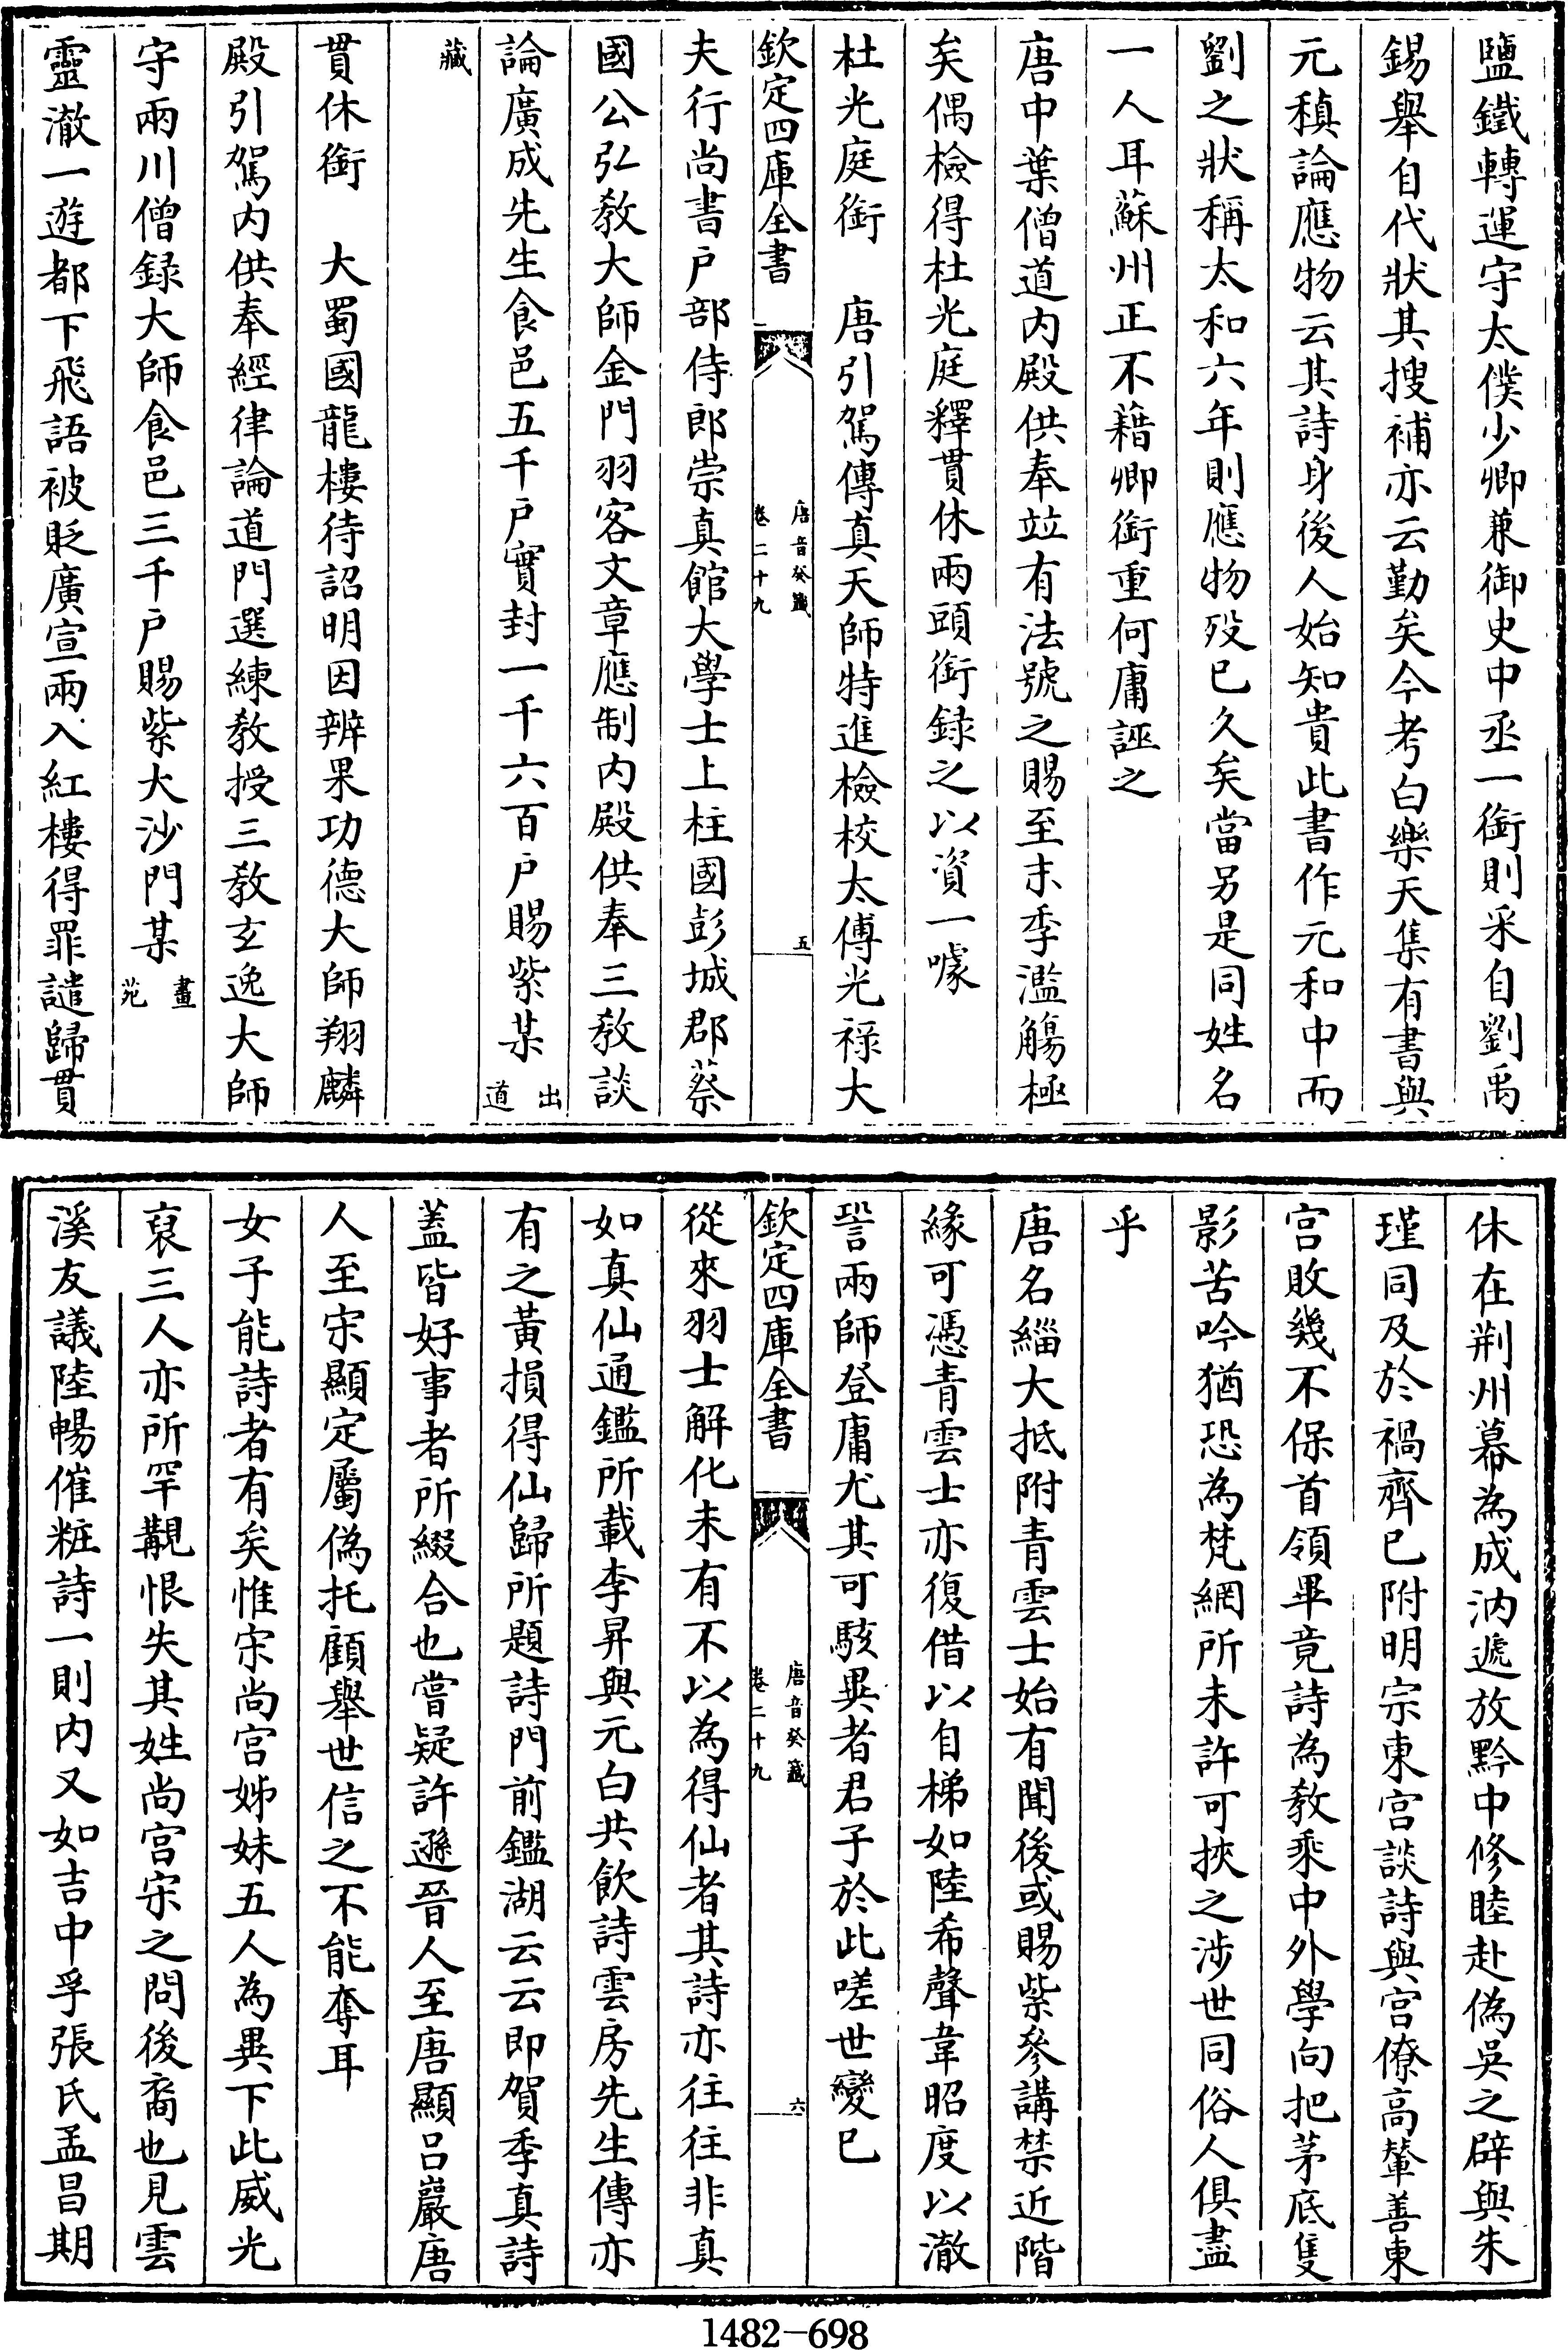 鹽鐵轉運守太僕少卿兼御史中丞一銜則采自劉禹
錫舉自代狀其搜補亦云勤矣今考白樂天集有書與
元稹論應物云其詩身後人始知貴此書作元和中而
劉之狀稱太和六年則應物歿已久矣當另是同姓名
一人耳蘇州正不藉卿銜重何庸誣之
唐中葉僧道内殿供奉竝有法號之賜至末季濫觴極
矣偶檢得杜光庭釋貫休兩頭銜録之以資一噱
杜光庭銜　唐引駕傳真天師特進檢校太傅光祿大
欽定四庫全書
唐音癸籖
卷二十九
五
夫行尚書户部侍郎崇真館大學士上柱國彭城郡蔡
國公弘教大師金門羽客文章應制内殿供奉三教談
論廣成先生食邑五千户實封一千六百户賜紫某出道
藏
貫休銜　大蜀國龍樓待詔明因辨果功德大師翔麟
殿引駕内供奉經律論道門選練教授三教玄逸大師
守兩川僧録大師食邑三千户賜紫大沙門某畫苑
靈澈一遊都下飛語被貶廣宣兩入紅樓得罪譴歸貫
休在荆州幕為成汭遞放黔中修睦赴偽吳之辟與朱
瑾同及於禍齊已附明宗東宮談詩與宮僚高輦善東
宮敗幾不保首領畢竟詩為教乘中外學向把茅底隻
影苦吟猶恐為梵網所未許可挾之涉世同俗人俱盡
乎
唐名緇大抵附青雲士始有聞後或賜紫參講禁近階
緣可憑青雲士亦復借以自梯如陸希聲韋昭度以澈
䛐兩師登庸尤其可駭異者君子於此嗟世變已
欽定四庫全書
唐音癸籖
卷二十九
六
從來羽士解化未有不以為得仙者其詩亦往往非真
如真仙通鑑所載李昇與元白共飲詩雲房先生傳亦
有之黃損得仙歸所題詩門前鑑湖云云即賀季真詩
葢皆好事者所綴合也嘗疑許遜晉人至唐顯吕巖唐
人至宋顯定屬偽托顧舉世信之不能奪耳
女子能詩者有矣惟宋尚宮姊妹五人為異下此威光
裒三人亦所罕覯恨失其姓尚宮宋之問後裔也見雲
溪友議陸暢催粧詩一則内又如吉中孚張氏孟昌期
1482-698